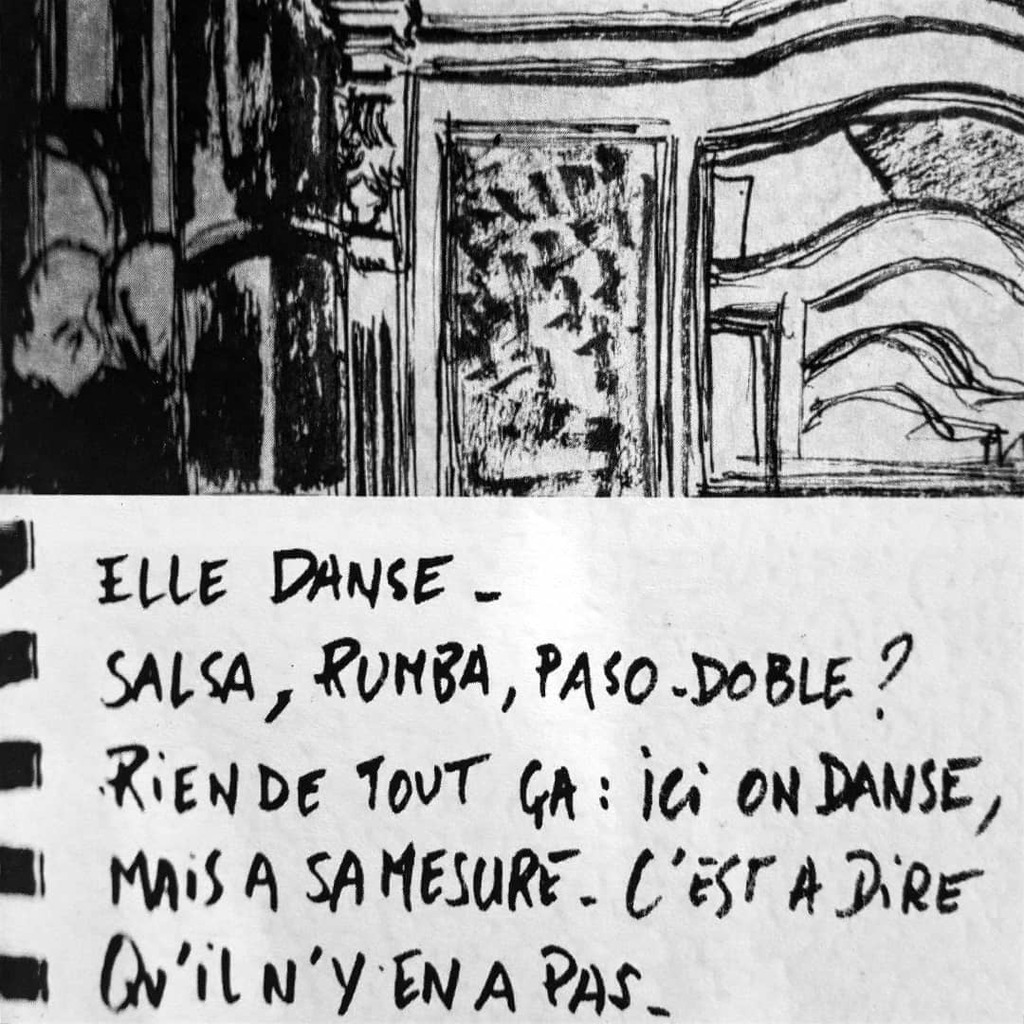 ELLE DANSE -
SALSA, RUMBA, PASO-DOBLE ?
RIEN DE TOUT ÇA : ICI ON DANSE,
MAIS A SA MESURE - C'EST A DIRE
QU'IL N'Y EN A PAS -